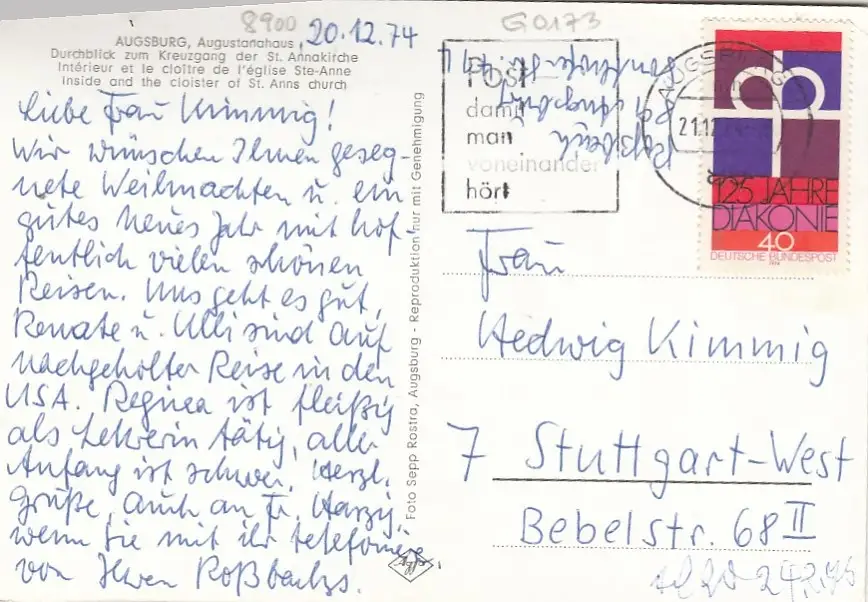 8900
G0173
20.12.74
AUGSBURG, Augustanahaus
Durchblick zum Kreuzgang der St. Annakirche
Intérieur et le cloître de l'église Ste-Anne
Inside and the cloister of St. Anns church
Liebe Frau Kimmig!
Wir wünschen Ihnen geseg-
nete Weihnachten u. ein
gutes neues Jahr mit hof-
fentlich vielen schönen
Reisen. Uns geht es gut,
Renate u. Ulli sind auf
nachgeholter Reise in den
USA. Regina ist fleißig
als Lehrerin tätig, aller
Anfang ist schwer. Herzl.
Grüße, auch an Fr. Harzig,
wenn Sie mit ihr telefonieren
von Ihren Roßbachs.
Foto Sepp Rostra, Augsburg - Reproduktion nur mit Genehmigung
Agfa
Roßbach
89 Augsburg
Post
damit
man
voneinander
hört
AUGSBURG
21.12.
125 JAHRE
DIAKONIE
40
DEUTSCHE BUNDESPOST
1974
Frau
Hedwig Kimmig
7 Stuttgart-West
Bebelstr. 68 II